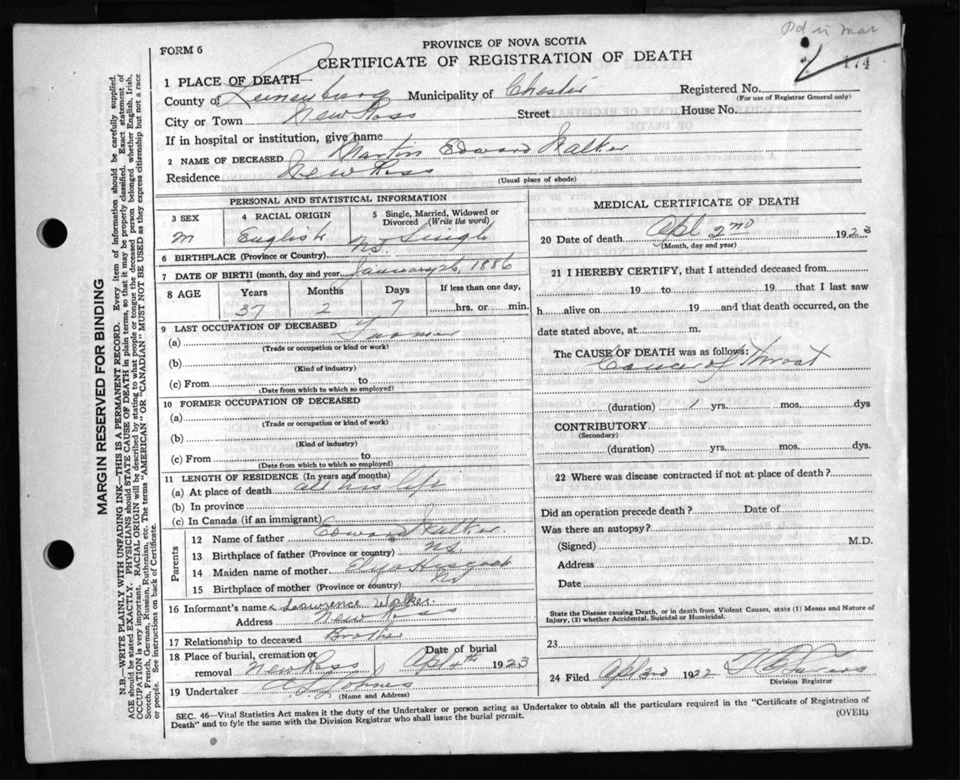 FORM 6
PROVINCE OF NOVA SCOTIA
CERTIFICATE OF REGISTRATION OF DEATH
174
1 PLACE OF DEATH—
County of Lunenburg Municipality of Chester Registered No.
(For use of Registrar General only)
City or Town New Ross Street House No.
If in hospital or institution, give name
2 NAME OF DECEASED Edward Walker
Residence New Ross
(Usual place of abode)
PERSONAL AND STATISTICAL INFORMATION
3 SEX 4 RACIAL ORIGIN 5 Single, Married, Widowed or Divorced (Write the word)
M English Single
6 BIRTHPLACE (Province or Country) NS
7 DATE OF BIRTH (month, day and year) January 26, 1886
8 AGE Years Months Days If less than one day,
37 2 7 hrs. or min.
9 LAST OCCUPATION OF DECEASED
(a) Farmer
(Trade or occupation or kind or work)
(b)
(Kind of industry)
(c) From to
(Date from which to which so employed)
10 FORMER OCCUPATION OF DECEASED
(a)
(Trade or occupation or kind of work)
(b)
(Kind of industry)
(c) From to
(Date from which to which so employed)
11 LENGTH OF RESIDENCE (In years and months)
(a) At place of death all his life
(b) In province
(c) In Canada (if an immigrant)
Parents
12 Name of father Edward Walker
13 Birthplace of father (Province or country) NS
14 Maiden name of mother
15 Birthplace of mother (Province or country) NS
16 Informant's name Lawrence Walker
Address New Ross
17 Relationship to deceased Brother
18 Place of burial, cremation or removal New Ross Date of burial Apl 4th 1923
19 Undertaker
(Name and Address)
MEDICAL CERTIFICATE OF DEATH
20 Date of death Apl 2nd 1923
(Month, day and year)
21 I HEREBY CERTIFY, that I attended deceased from
19 to 19 that I last saw
h alive on 19 and that death occurred, on the
date stated above, at m.
The CAUSE OF DEATH was as follows:
Cancer of throat
(duration) 1 yrs. mos. dys
CONTRIBUTORY
(Secondary)
(duration) yrs. mos. dys.
22 Where was disease contracted if not at place of death?
Did an operation precede death? Date of
Was there an autopsy?
(Signed) M.D.
Address
Date
State the Disease causing Death, or in death from Violent Causes, state (1) Means and Nature of
Injury, (2) whether Accidental, Suicidal or Homicidal.
23
24 Filed 1922
Division Registrar
SEC. 46—Vital Statistics Act makes it the duty of the Undertaker or person acting as Undertaker to obtain all the particulars required in the "Certificate of Registration of
Death" and to fyle the same with the Division Registrar who shall issue the burial permit.
(OVER)
MARGIN RESERVED FOR BINDING
N.B.—WRITE PLAINLY WITH UNFADING INK—THIS IS A PERMANENT RECORD. Every item of information should be carefully supplied.
AGE should be stated EXACTLY. PHYSICIANS should STATE CAUSE OF DEATH in plain terms, so that it may be properly classified. Exact statement of
OCCUPATION is very important. RACIAL ORIGIN will be described by stating to what people or tongue the deceased person belonged whether English, Irish,
Scotch, French, German, Russian, Ruthenian, etc. The terms "AMERICAN" OR "CANADIAN" MUST NOT BE USED as they express citizenship but not a race
or people. See instructions on back of Certificate.